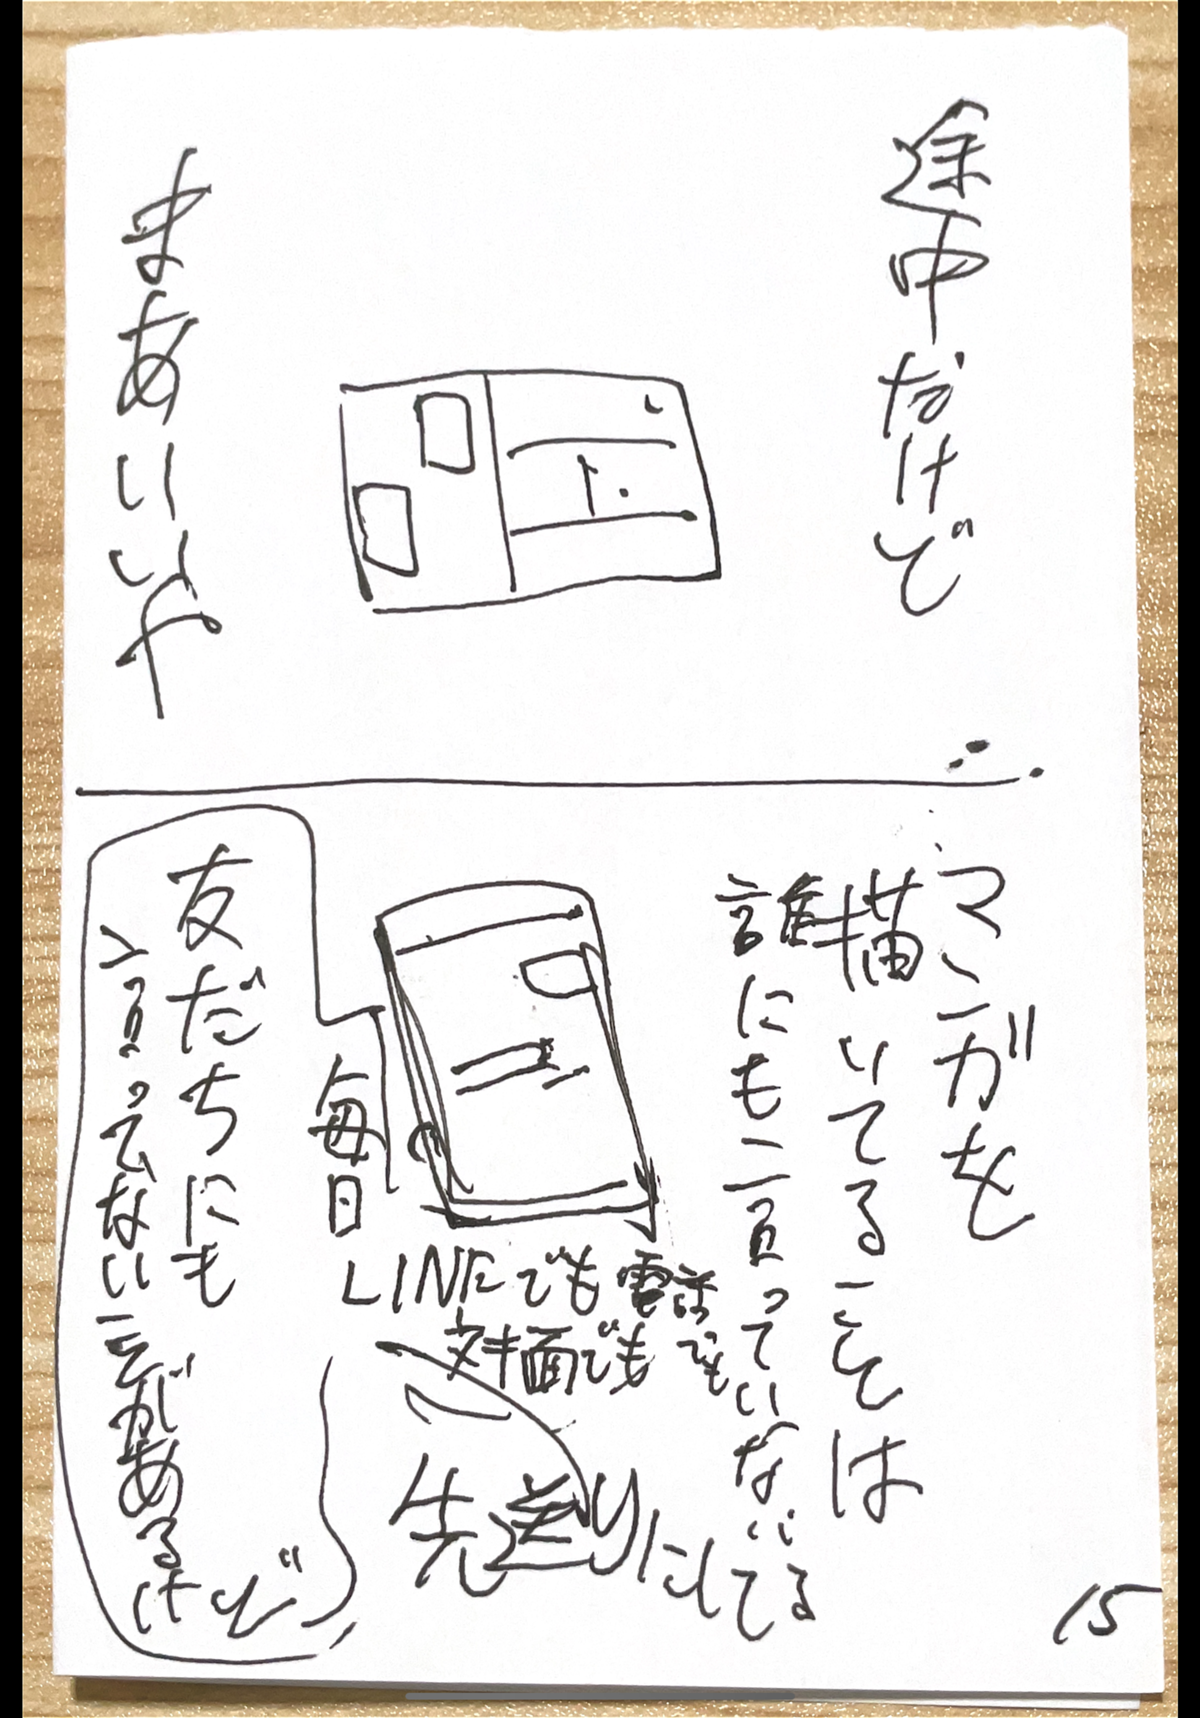 途中だけど
まあいいや
マンガを
描いてることは
誰にも言っていない
毎日
LINEでも電話でも
対面でも
先送りにしてる
友だちにも
言ってない
があるけど
15